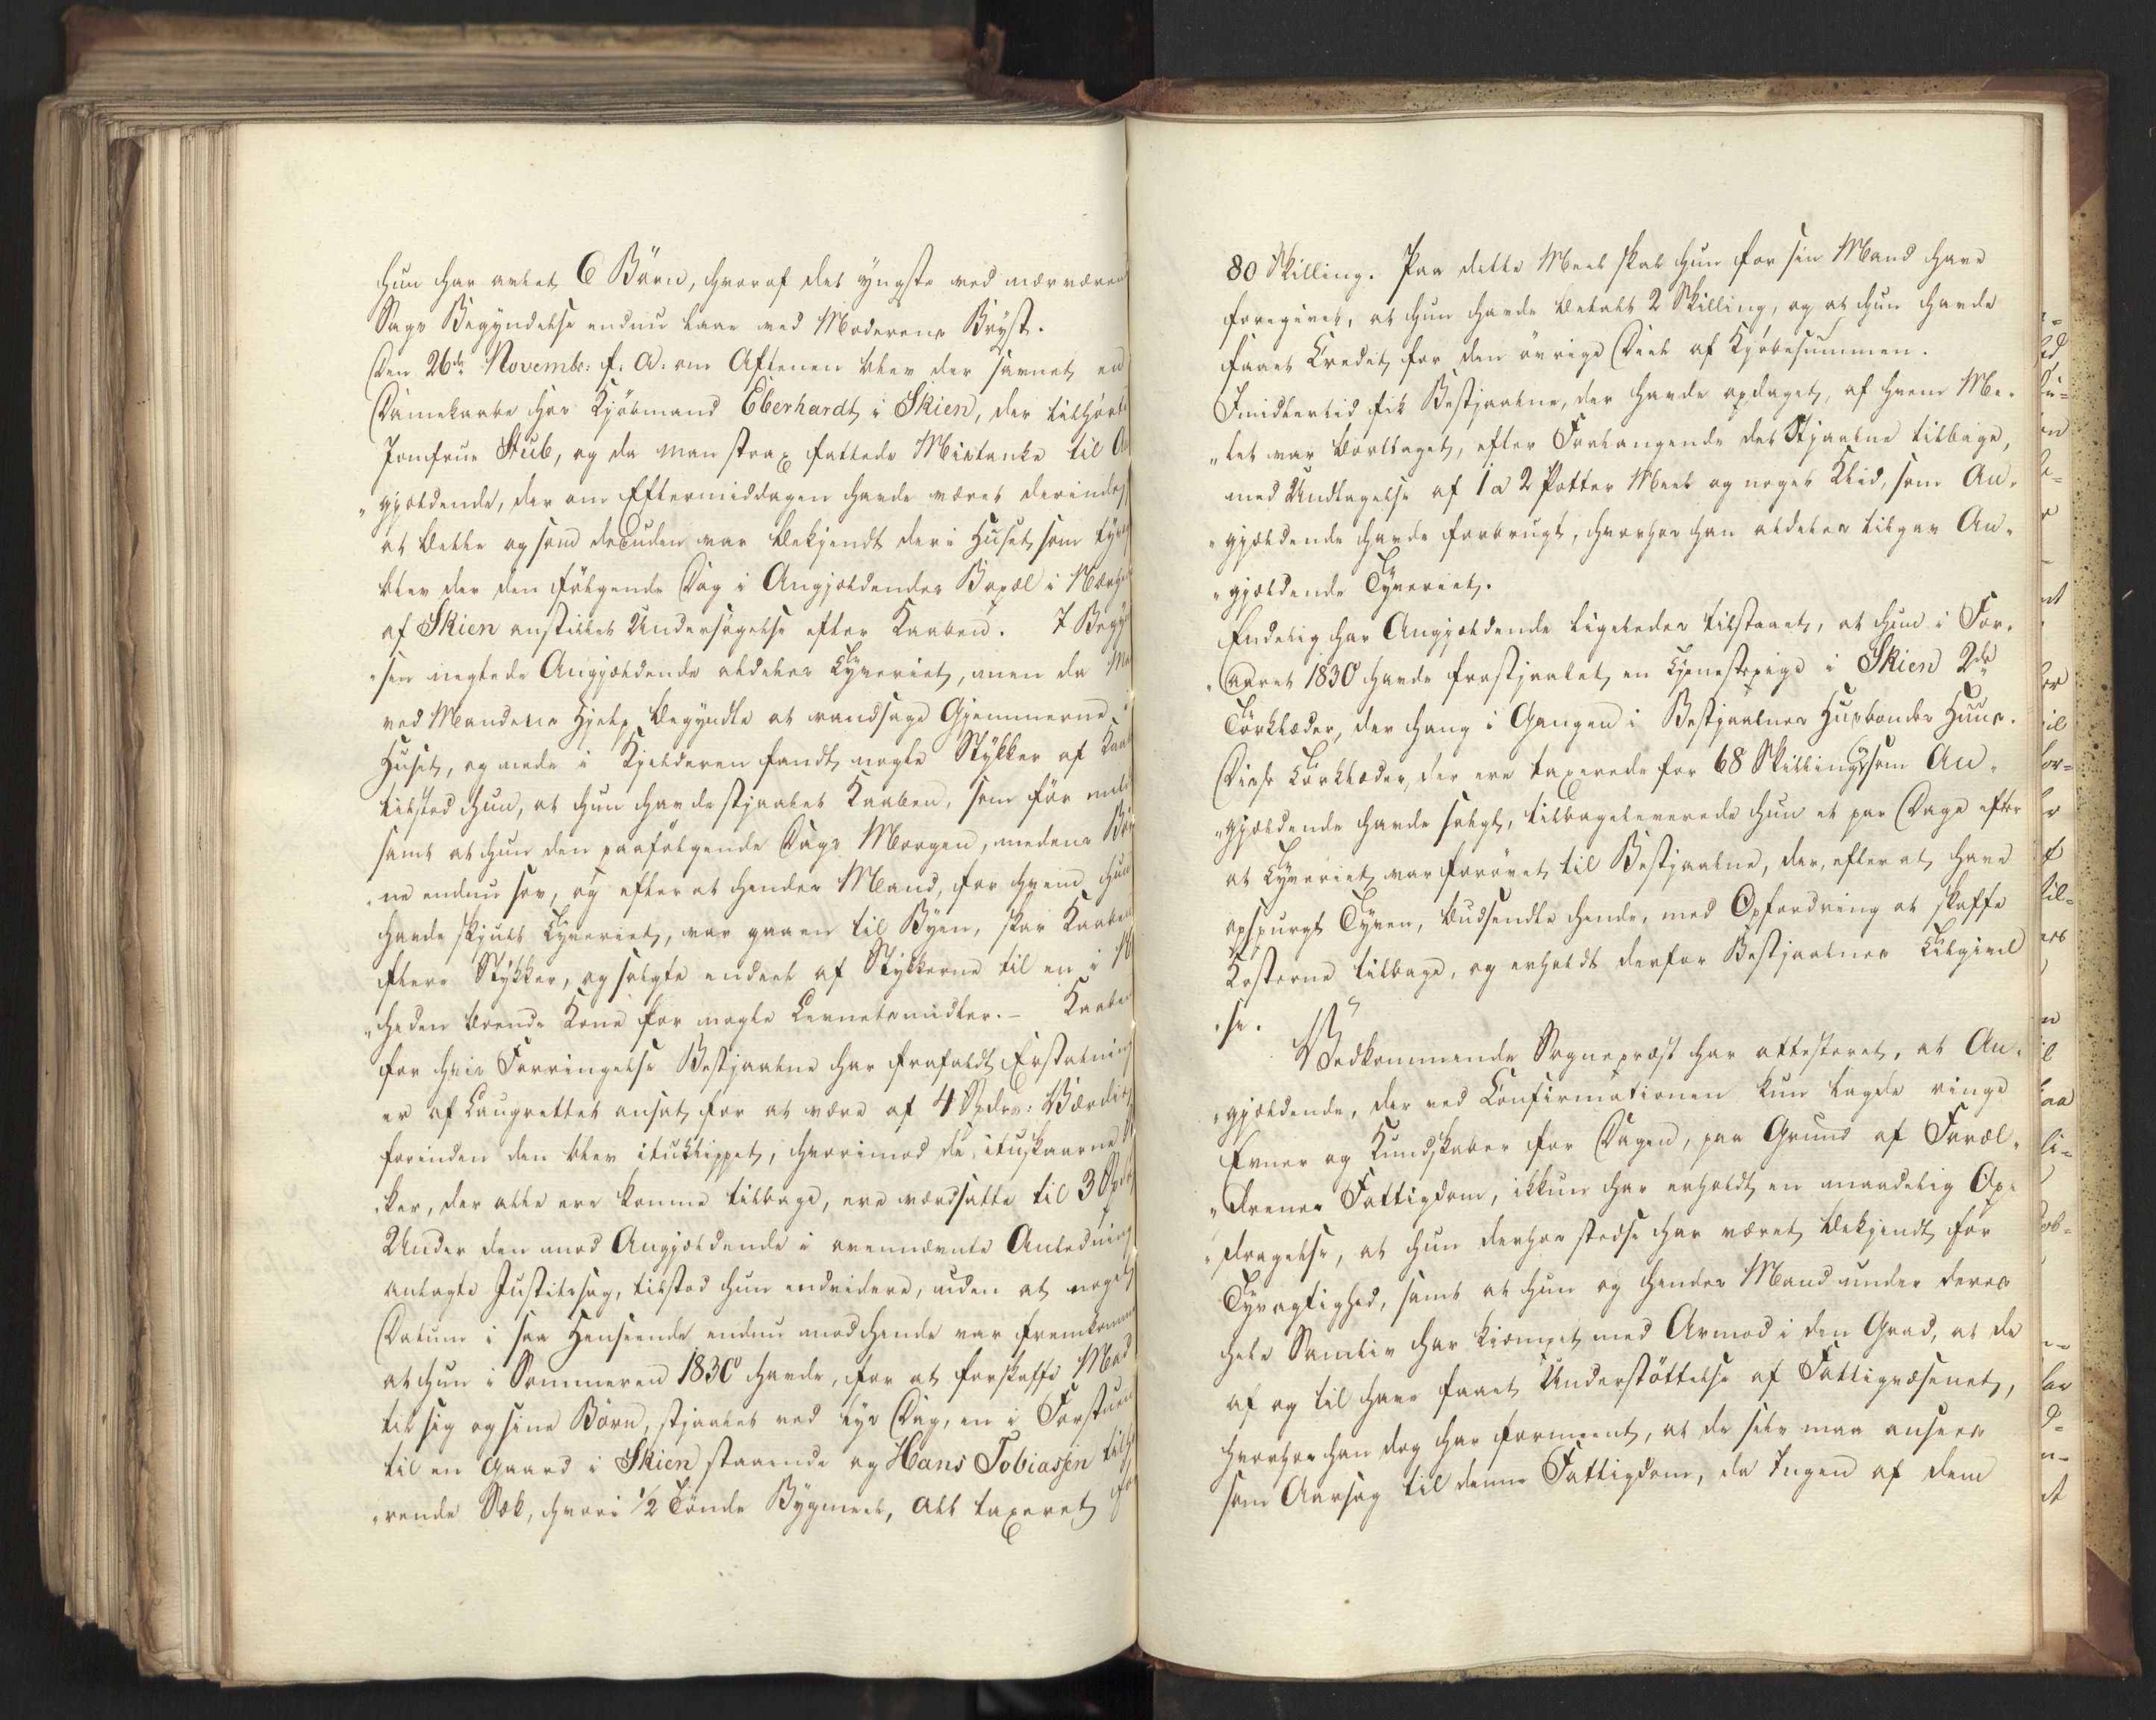 hun har avlet 6 Børn, hvoraf det yngste ved nærværen
Sags Begyndelse endnu laae ved Moderens Bryst.
Den 26de Novembr: f: A: om Aftenen blev der savnet en
Damekaabe hos Kjøbmand Eberhardt i Skien, der tilhørte
Jomfrue Stub, og da man strax fattede Mistanke til An
„gjældende, der om Eftermiddagen havde været derinde,
at betle og som desuden var bekjendt der i Huset som
blev der den følgende Dag i Angjældendes Bopæl i Nærhe
af Skien anstillet Undersøgelse efter Kaaben. I Begy
„sen negtede Angjældende aldeles Tyveriet, men da Ma
ved Mandens Hjelp begyndte at randsage Gjemmerne i
Huset, og nede i Kjelderen fandt nogle Stykker af Kaab
tilstod hun, at hun havde stjaalet Kaaben, som før
samt at hun den paafølgende Dags Morgen, medens Bør
„ne endnu sov, og efter at hendes Mand, for hvem hun
havde skjult Tyveriet, var gaaen til Byen, skar Kaaben
flere Stykker, og solgte endeel af Stykkerne til en i
„heden boende Kone for nogle Levnetsmidler. – Kaaben
for hvis Forringelse Bestjaalne har frafaldt Erstatning
er af Laugrettet ansat for at være af 4 Spdrs: Værdie,
forinden den blev ituklippet, hvorimod de ituskaarne
„ker, der alle ere komne tilbage, ere værdsatte til 3 Spd
Under den mod Angjældende i ovennævnte Anledning
anlagte Justitssag, tilstod hun endvidere, uden at noget
Datum i saa Henseende endnu mod hende var fremkomm
at hun i Sommeren 1830 havde, for at forskaffe Mad
til sig og sine Børn, stjaalet ved lys Dag, en i Forstuen
til en Gaard i Skien staaende og Hans Tobiassen tilhø
„rende Sæk, hvori ½ Tønde Bygmeel, Alt taxeret for
80 Skilling. Paa dette Meel skal hun for sin Mand have
foregivet, at hun havde betalt 2 Skilling, og at hun havde
faaet Credit for den øvrige Deel af Kjøbesummen.
Imidlertid fik Bestjaalne, der havde opdaget, af hvem Me„
„let var borttaget, efter Forlangende det Stjaalne tilbage,
med Undtagelse af 1 a 2 Potter Meel og noget Klid, som An„
„gjældende havde forbrugt, hvorhos han aldeles tilgav An„
„gjældende Tyveriet.
Endelig har Angjældende ligeledes tilstaaet, at hun i For„
„aaret 1830 havde frastjaalet en Tjenestepige i Skien 2de
Tørklæder, der hang i Gangen i Bestjaalnes Husbonds Huus.
Disse Tørklæder, der ere taxerede for 68 Skilling, som An„
„gjældende havde solgt, tilbageleverede hun et par Dage efter
at Tyveriet var forøvet til Bestjaalne, der, efter at have
opspurgt Tyven, budsendte hende, med Opfordring at skaffe
Kosterne tilbage, og erholdt derfor Bestjaalnes Tilgivel
„se.
Vedkommende Sognepræst har attesteret, at An„
„gjældende, der ved Confirmationen kun lagde ringe
Evner og Kundskaber for Dagen, paa Grund af Foræl„
„drenes Fattigdom, ikkun har erholdt en maadelig Op„
„dragelse, at hun derhos stedse har været bekjendt for
Tyvagtighed, samt at hun og hendes Mand under deres
hele Samliv har kiæmpet med Armod i den Grad, at de
af og til have faaet Understøttelse af Fattigvæsenet,
hvorhos han dog har formeent, at de selv maa ansees
som Aarsag til denne Fattigdom, da Ingen af dem